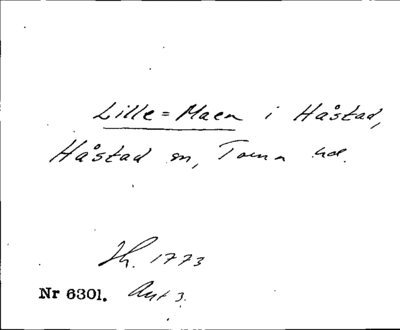 Lille=Maen i Håstad,
Håstad sn, Torna hd.
Sk. 1773
Nr 6301. Akt 3.